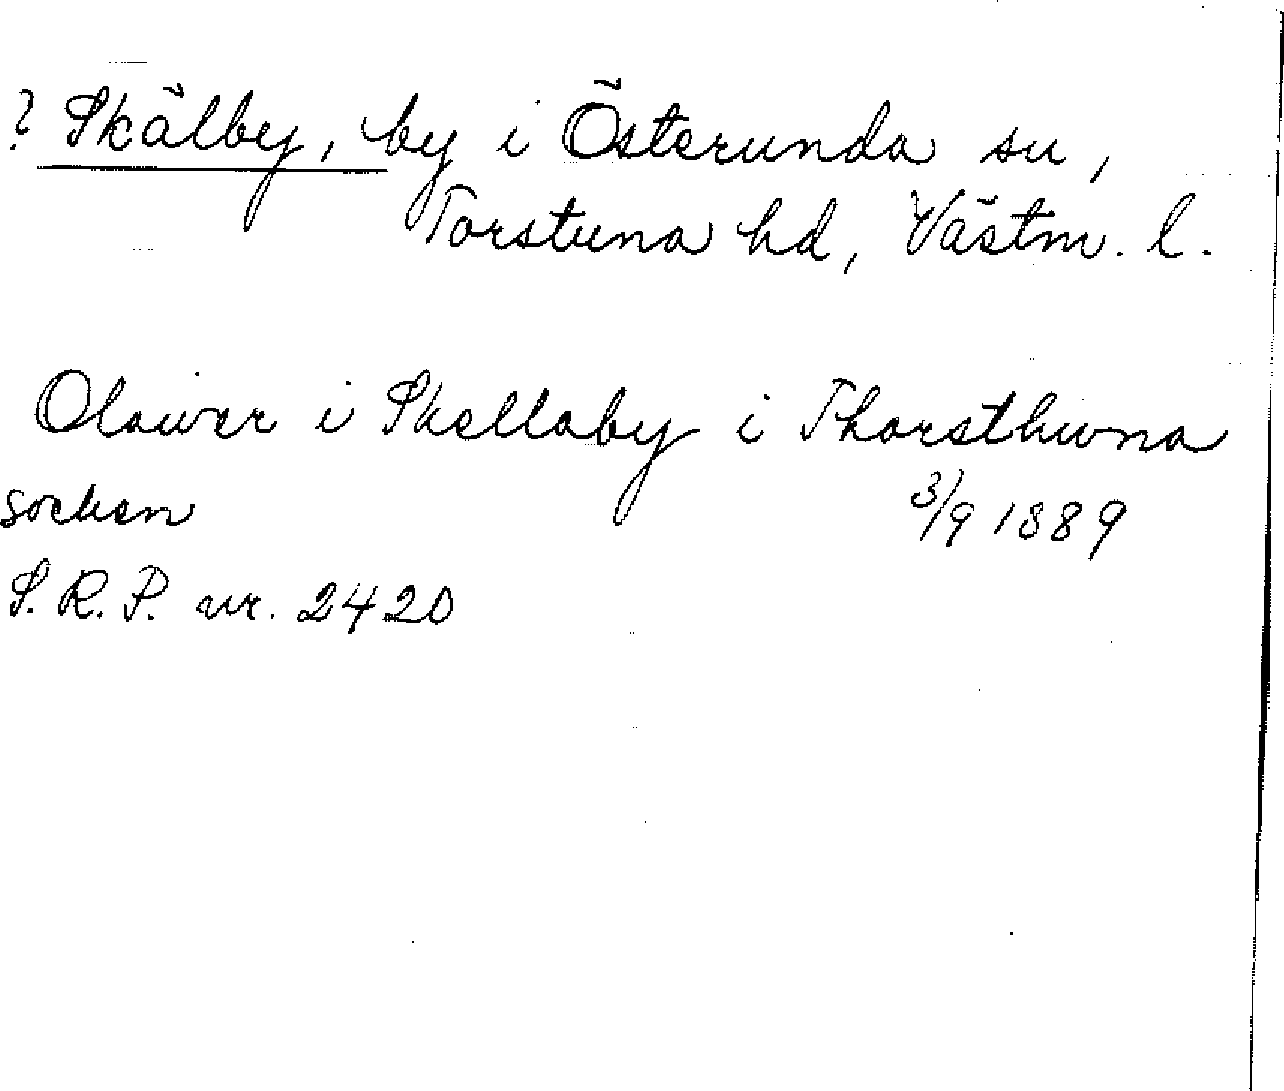 ? Skälby, by i Österunda sn,
Torstuna hd, Västm. l.
Olawer i Skellaby i Thorsthwna
socken 3/9 1889
S. R. P. nr. 2420